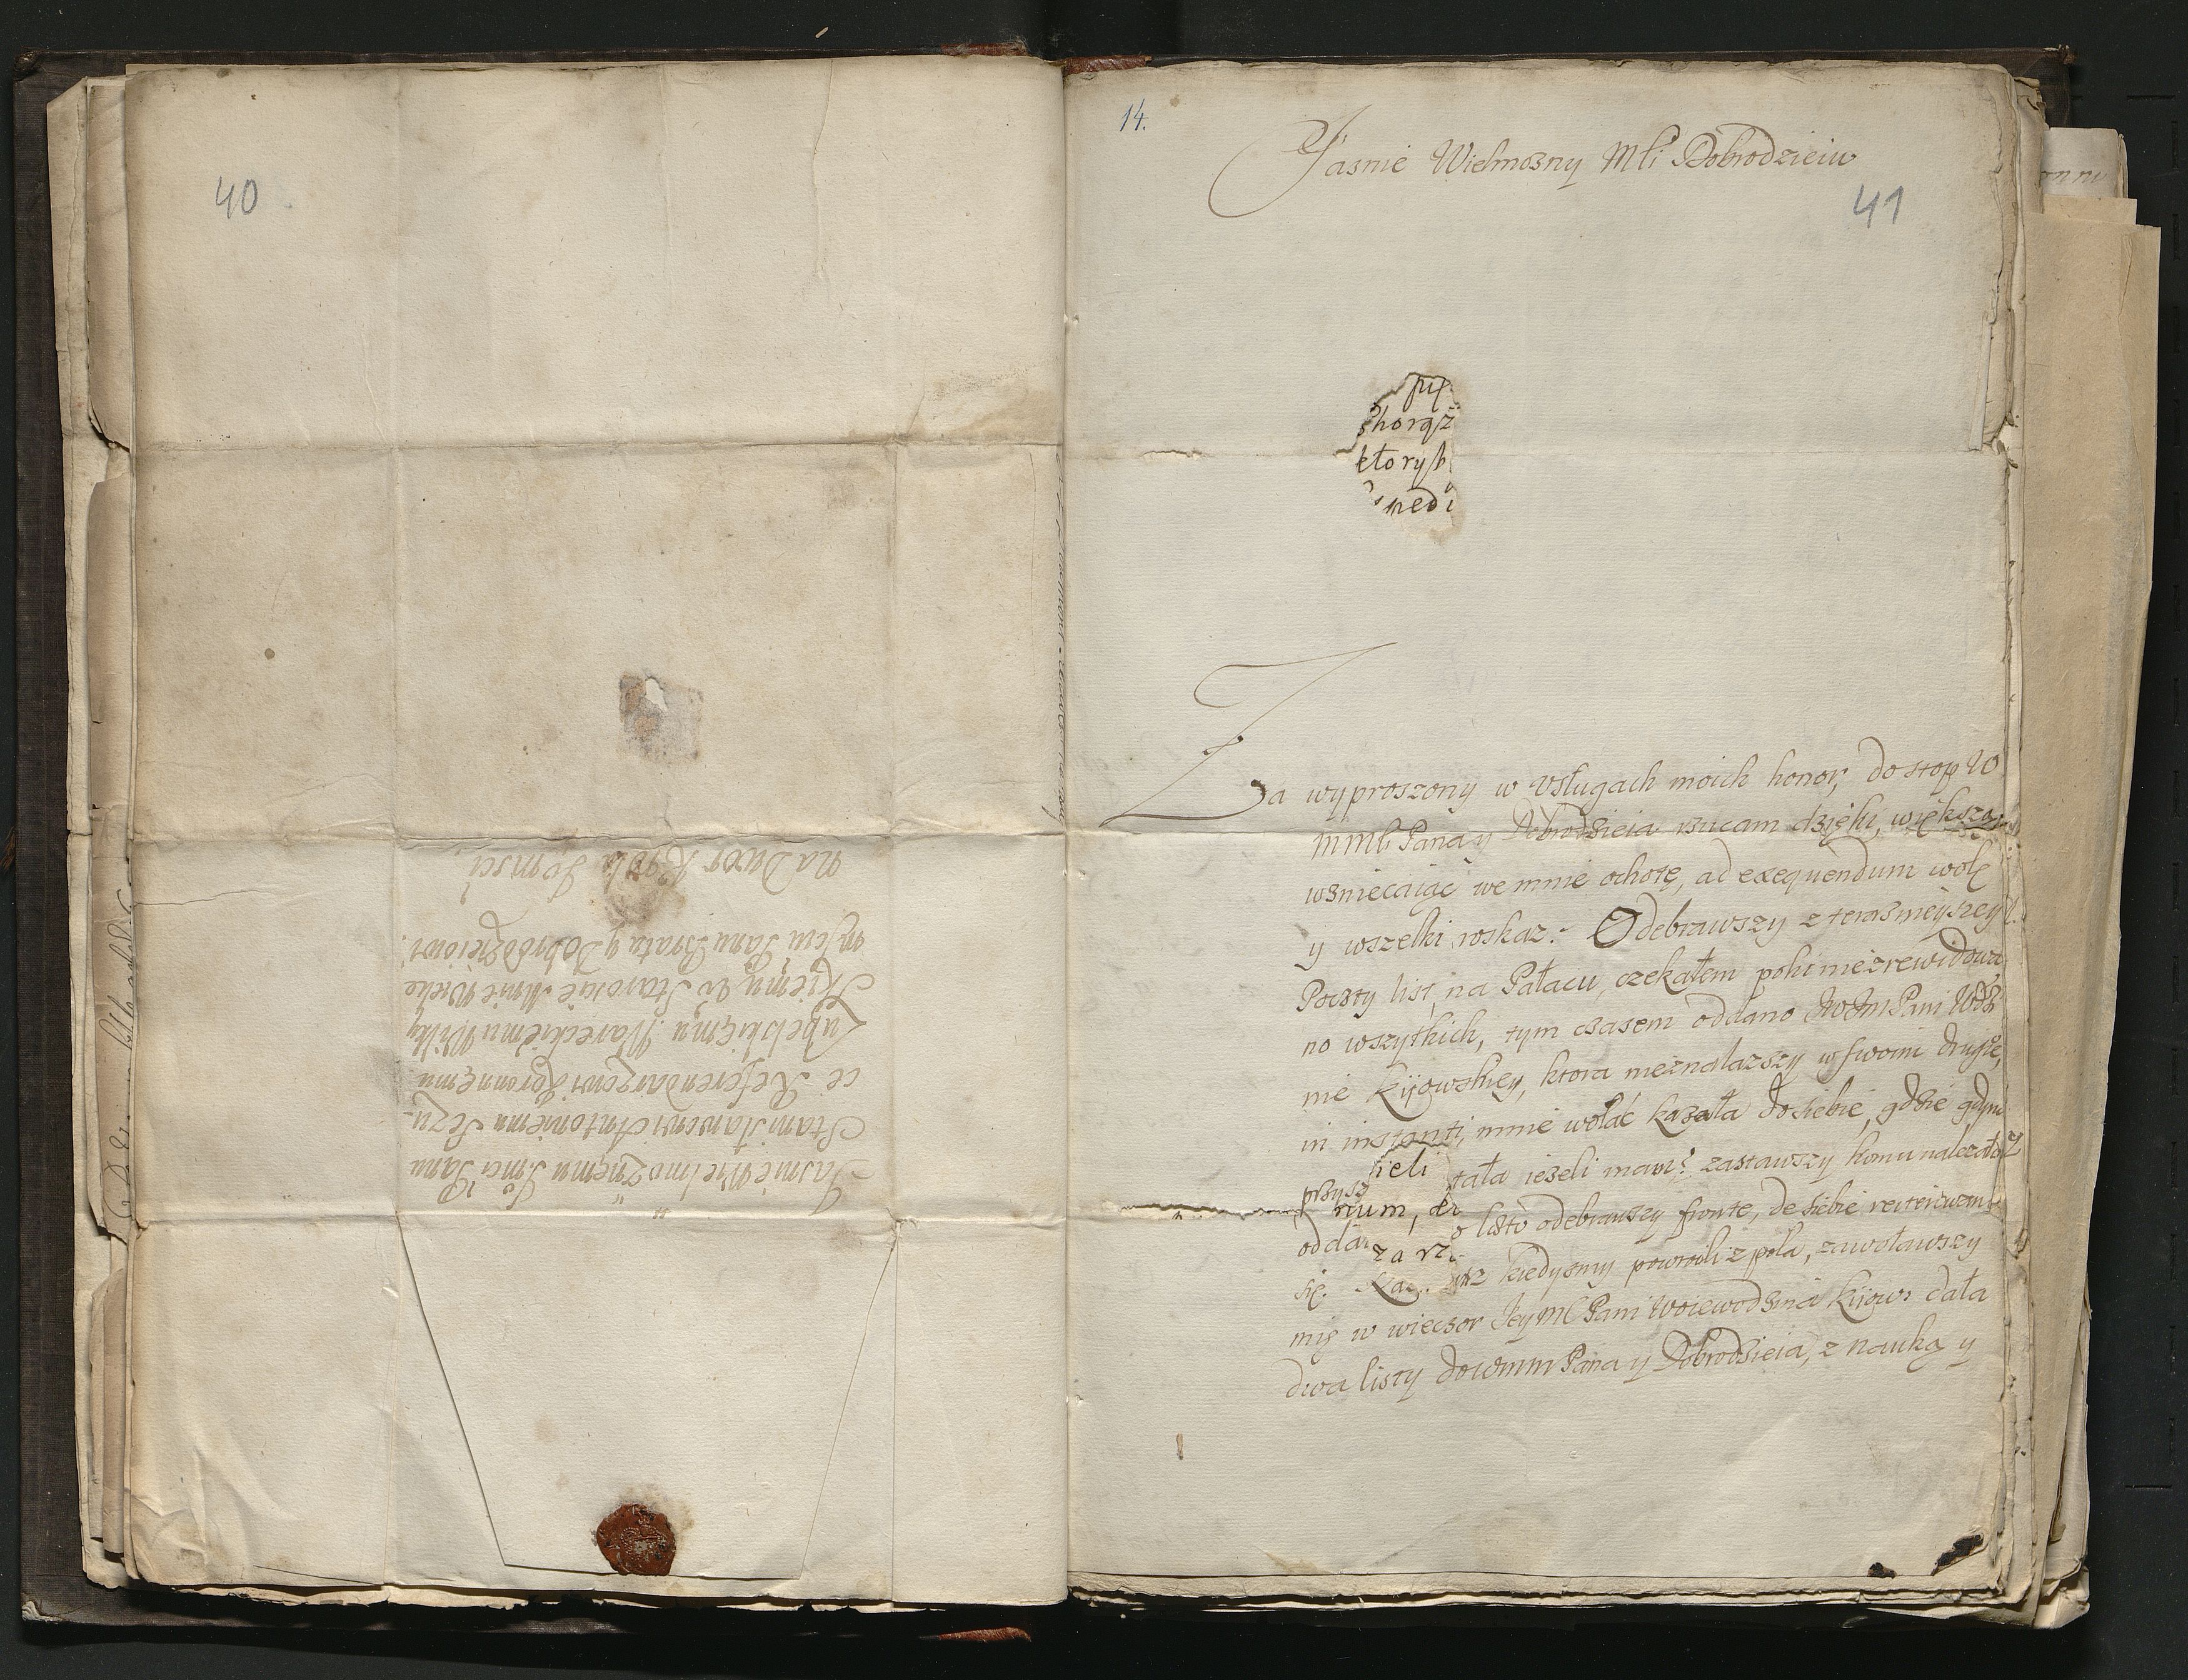 40
Jasnie Wielmożnemu Jmci Panu
Stanisławowi Antoniemu Szczu-
ce Referendarzowi Koronnemu
Lubelskiemu, Wareckiemu Wilky
skiemu & Staroscie Mnie Wielce
Mściwemu Panu Bratu y Dobrodzieiowi.
na Dwor Krola Jegmsci
14.
41
Jasnie Wielmozny Mśi Dobrodzieiu
się
horąż
ktorysz
nedi
Za wyproszony w usługach moich honor, do stop W
MMśc Pana y Dobrodzieia rzucam dzięki, większą
wzniecaiąc we mnie ochotę, ad exequendum wolę
y wszelki rozkaz. Odebrawszy z terazmeyszey
Poczty list, na Pałacu, czekałem poki niezrewidowa
no wszytkich, tym czasem oddano JeyMPani Wdzi
nie Kijowskiey, ktora nieznalazszy w swoim drugie,
in instanti, mnie wołać kazała do siebie, gdzie gdym
przysz ieli tała iezeli mam? zastawszy komu nalezało
rium, do
odda o listo odebrawszy fronte, de siebie
za rz
się. kiedysmy powrocili z pola, zawoławszy
mię w wieczor JeyMść Pani Woiewodzina kijows dała
dwa listy do WMM Pana y Dobrodzieia, z nauką y